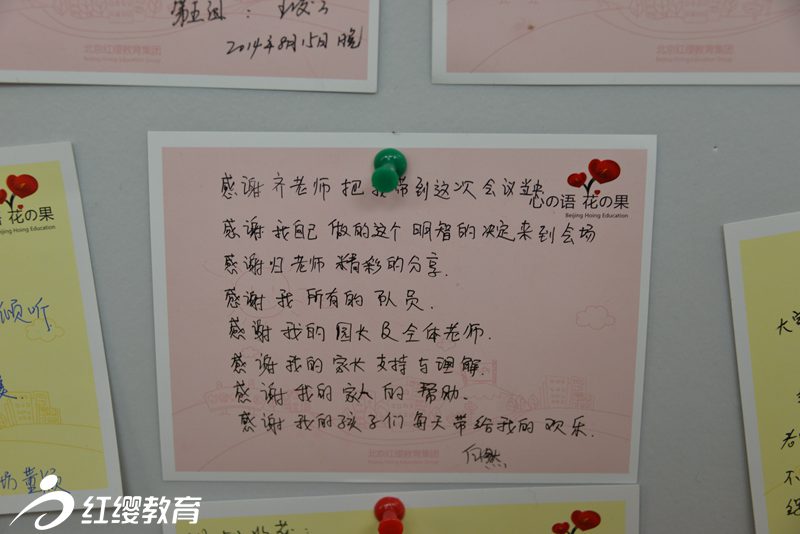 第五组：
2014年8月15日晚
北京红缨教育集团
Beijing Hoing Education Group
北京红缨教育集团
心の语 花の果
Beijing Hoing Education
感谢齐老师把我带到这次会议当中
感谢我自己做的这个明智的决定来到会场
感谢归老师精彩的分享.
感谢我所有的队员.
感谢我的园长及全体老师.
感谢我的家长支持与理解.
感谢我的家人的帮助.
感谢我的孩子们每天带给我的欢乐.
北京红缨教育集团
语 花の果
Beijing Hoing Education
倾听
红缨教育